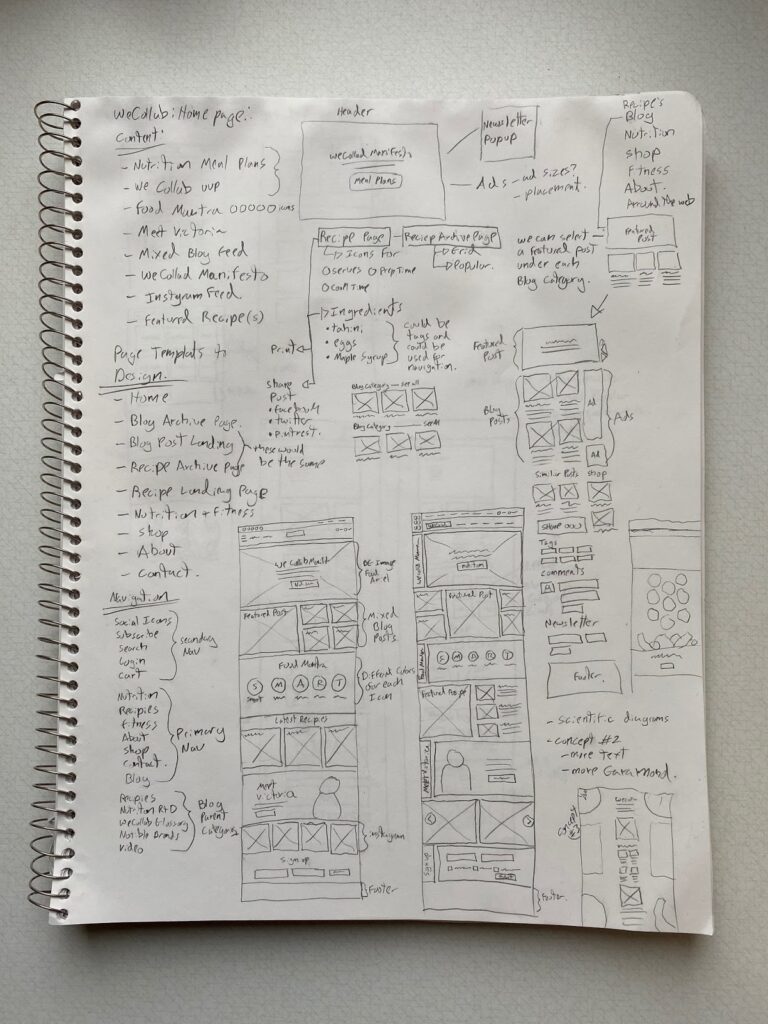 WeCollab: Home page:
Content:
- Nutrition Meal Plans
- We Collab
- Food Mantra OOOOO icons
- Meet Victoria
- Mixed Blog Feed
- WeCollab Manifesto
- Instgram Feed
- Featured Recipe(s)
Page Template to
Design.
- Home
- Blog Archive Page.
- Blog Post Landing
- Recipe Archive Page
these would
be the same
- Recipe Landing Page
- Nutrition + Fitness
- Shop
- About
- Contact.
Navigation
Social Icons
Subscribe
Search
Login
Cart
secondary
Nav
Nutrition
Recipies
Fitness
About
Shop
Contact.
Blog
Primary
Nav
Recipies
Nutrition R+D
WeCollab Glossary
Notible Brands
Video
Blog
Parent
Categories
Header
WeCollab Manifesto
Meal Plans
Newsletter
Popup
Ads - ad sizes?
- placement.
Recipe Page
Reciep Archive Page
Icons for
servers Prep Time
Cook Time
Grid
Popular.
Ingredients
• tahini
• eggs
• Maple Syrup
could be
tags and
could be
used for
navigation.
Print
Share
Post
• facebook
• twitter
• pintrest.
Blog Category - see all
Blog Category see All
Recipe's
Blog
Nutrition
Shop
Fitness
About.
Around the web
Featured
Post
we can select
a featured post
under each
Blog Category.
Featured
Post
Blog
Posts
Ad
Ad
Ads
Similar Posts Shop
Share
Tags
Comments
Newsletter
Footer.
- scientific diagrams
- concept #2
- more text
- more Garamond.
WeCollab
Featured Post
Food Mantra
S M A R T
Latest Recipies
Meet
Victoria
Sign up
Image
Food
Mixed
Blog
Posts
Different Colors
for each
Icon
Instagram
Footer
Featured Post
S M A R T
Featured Recipe
Meet Victoria
Sign up
Footer.